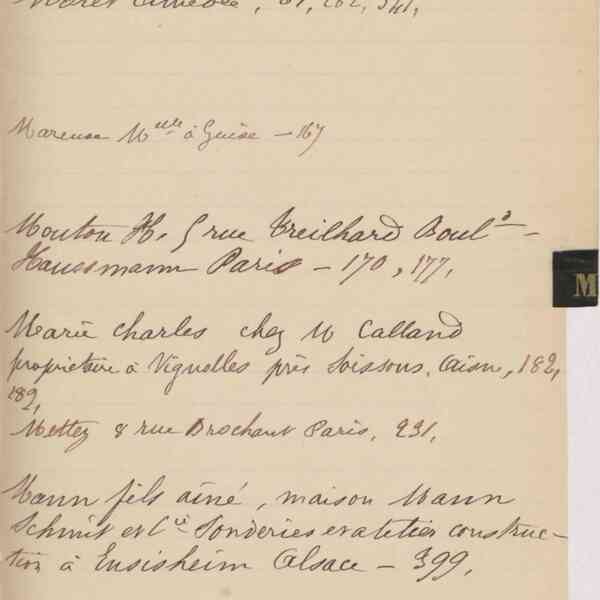 Moret Amédée, 61, 262, 341,
Mareuse Melle à Guise – 167
Mouton H. 5 rue Treilhard Bould –
Haussmann Paris – 170, 177,
M
Marie Charles chez M Calland
propriétaire à Vignolles près Soissons, Aisne, 182,
189,
Mettez 8 rue Brochant Paris, 231,
Mann fils aîné, maison Mann
Schmit et Cie Fonderies et atelier construc-
tion à Ensisheim Alsace – 399,